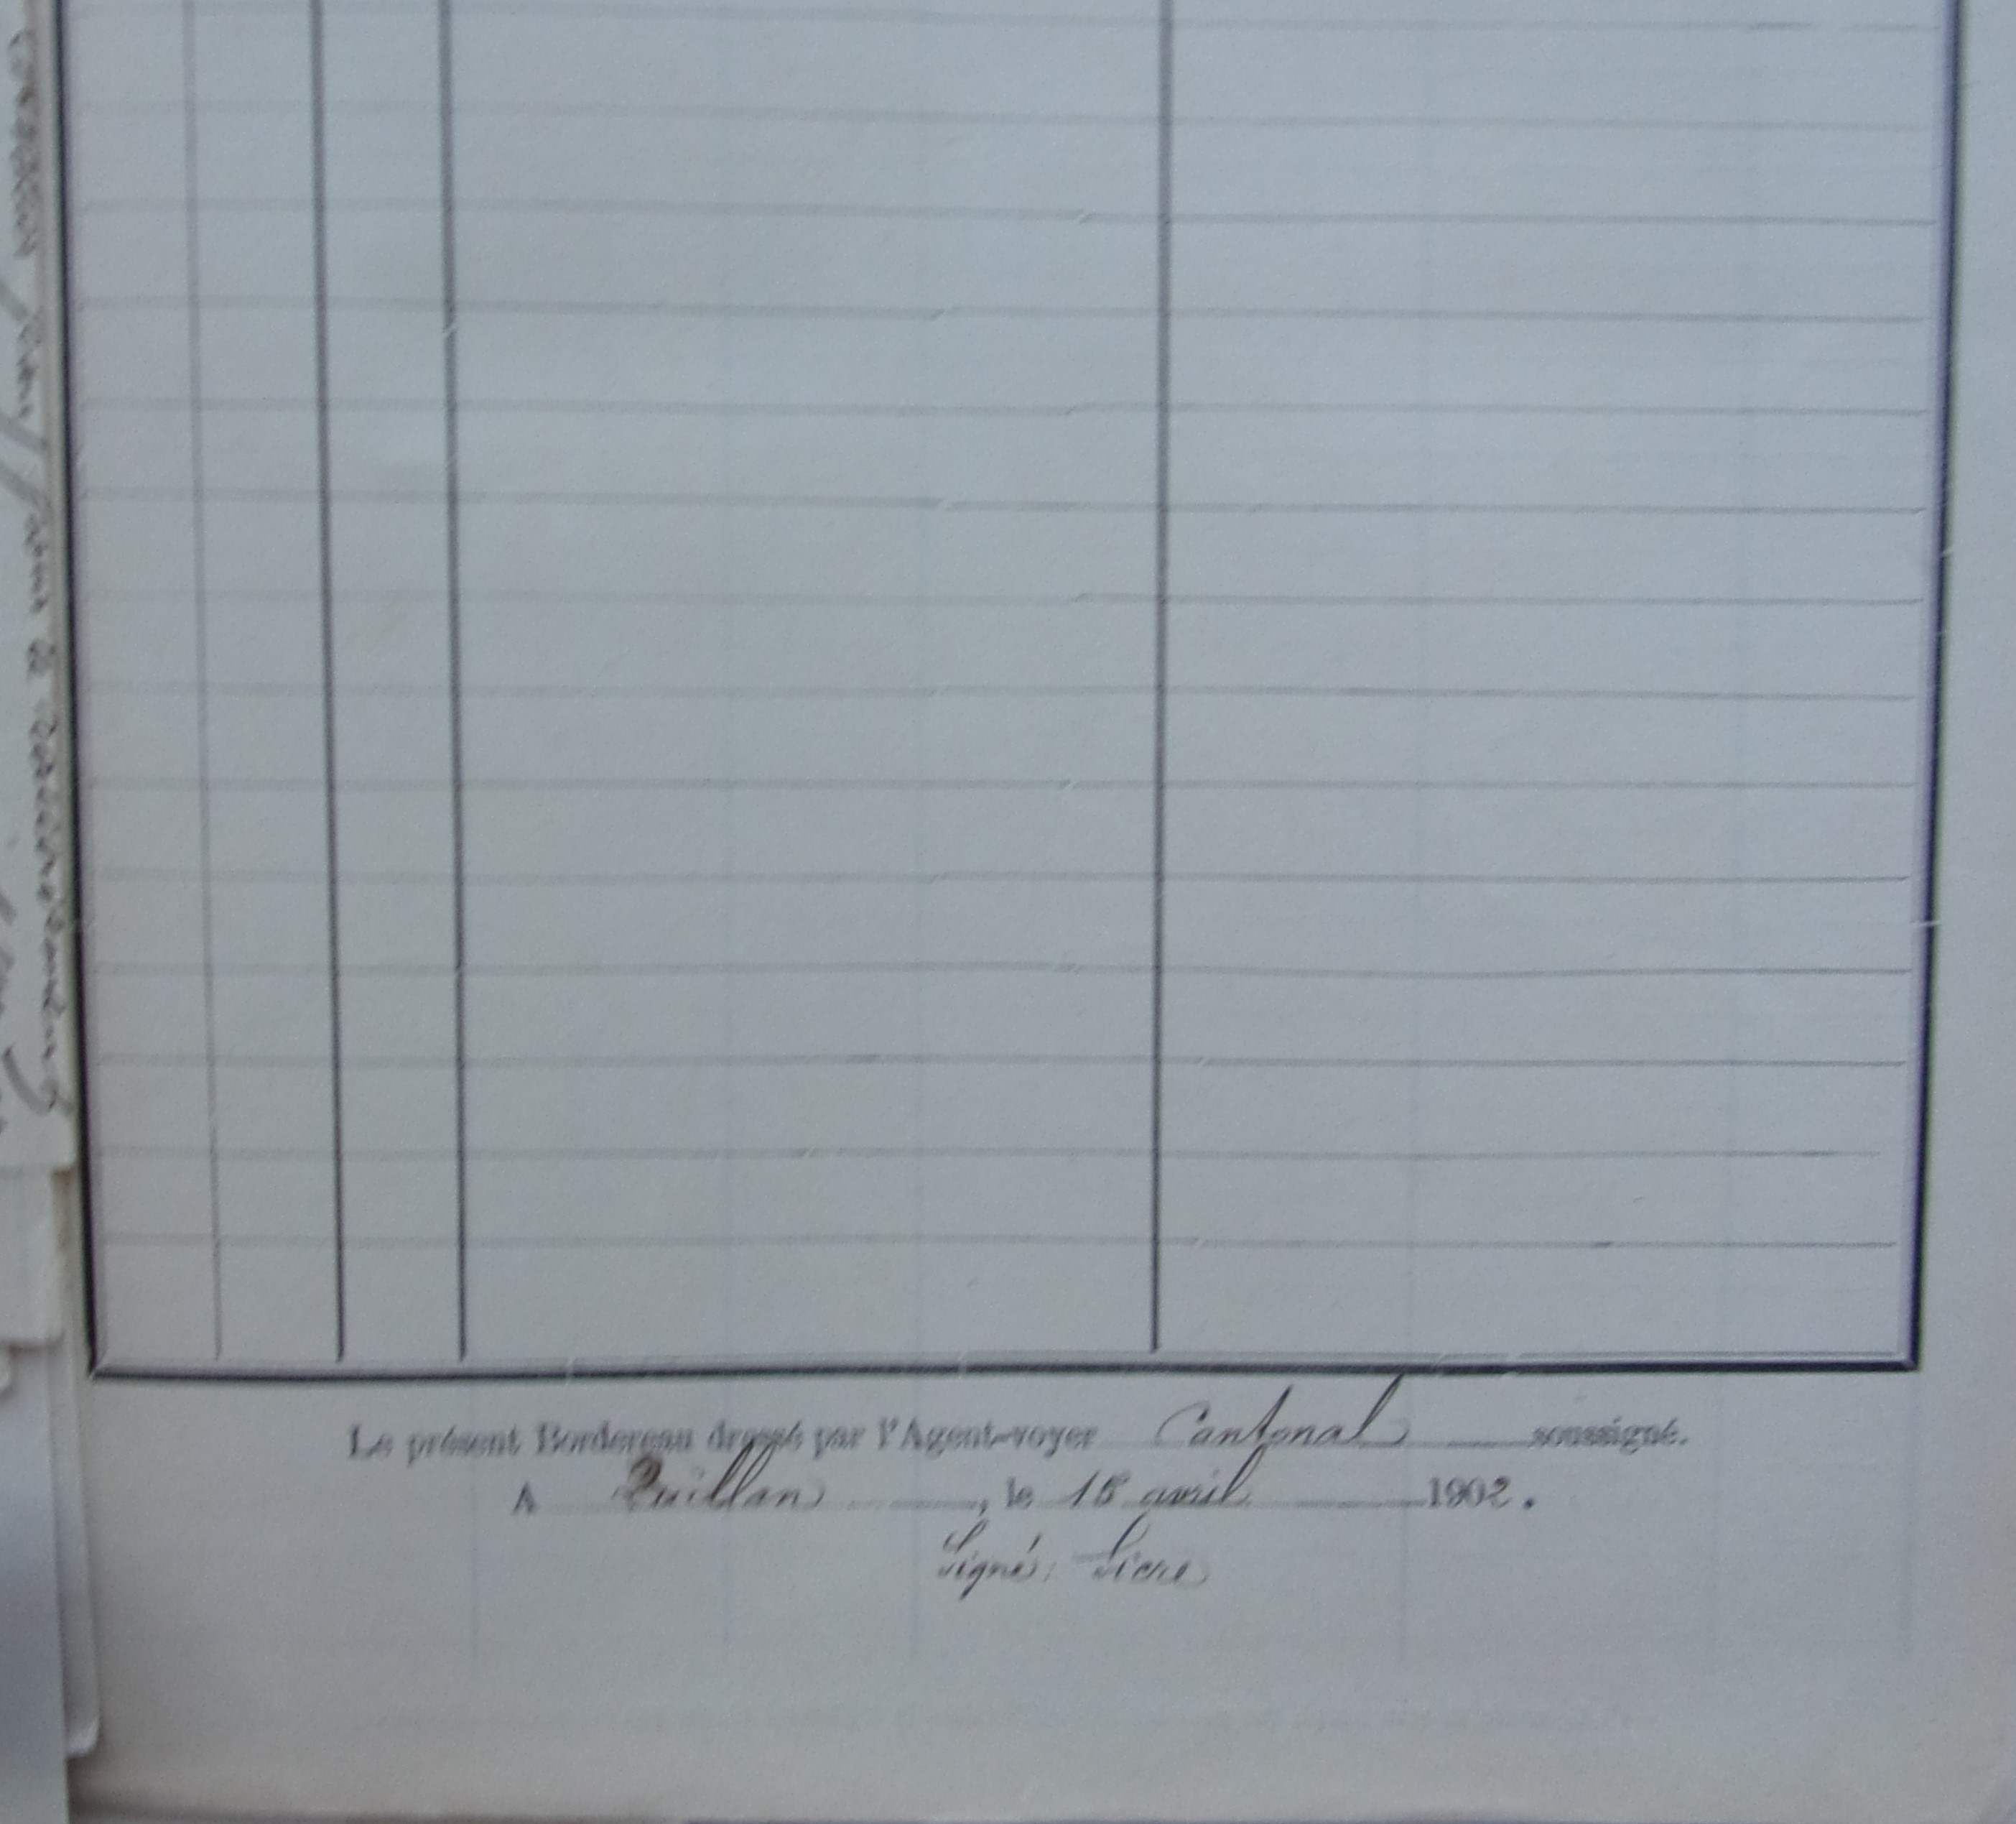 Le présent Bordereau dressé par l'Agent-voyer Cantonal soussigné.
A Quillan, le 15 avril 1902.
Signé: Sicre